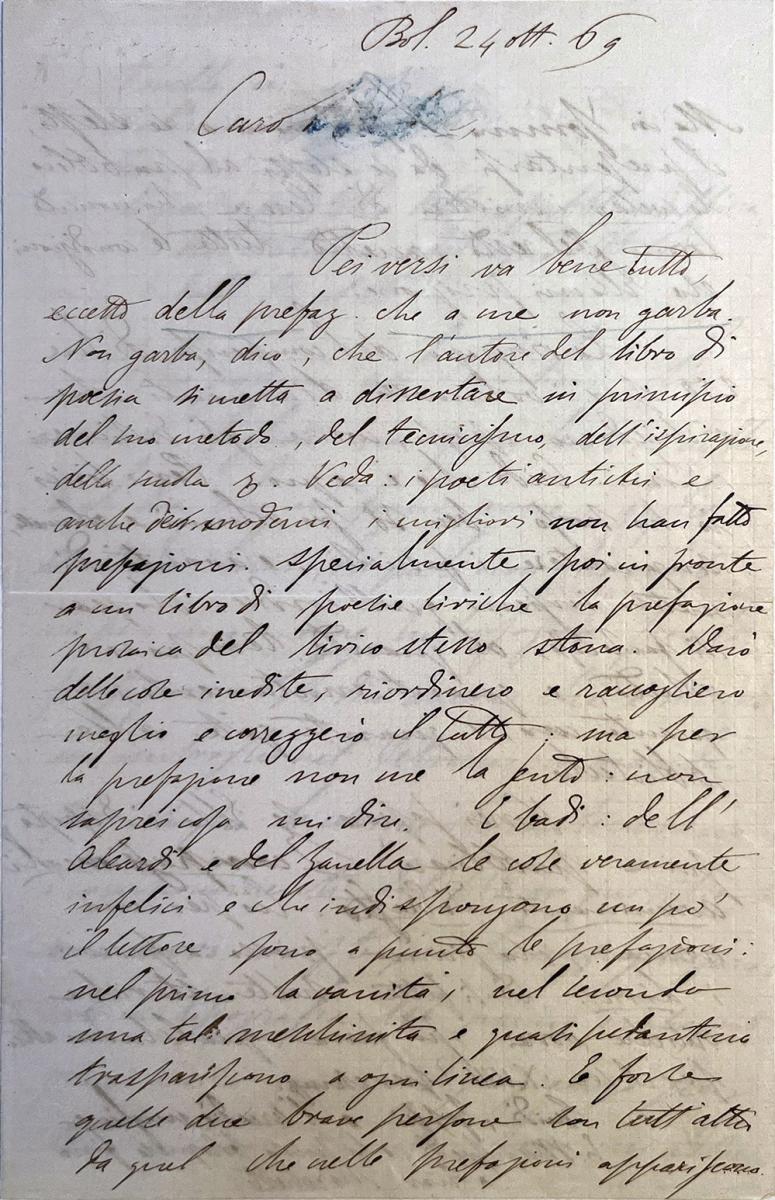 Bol. 24 ott. 69
Caro
Pei versi va bene tutto,
eccetto della prefaz. che a me non garba.
Non garba, dico, che l'autore del libro di
poesia si metta a dissertare in principio
del suo metodo, del tecnicismo, dell'ispirazione,
della scuola &. Veda: i poeti antichi e
anche dei moderni i migliori non han fatto
prefazioni. Specialmente poi in fronte
a un libro di poesie liriche la prefazione
prosaica del lirico stesso stona. Darò
delle cose inedite, riordinerò e raccoglierò
meglio e correggerò il tutto; ma per
la prefazione non me la sento: non
saprei cosa mi dire. E badi: dell'
Aleardi e del Zanella le cose veramente
infelici e che indispongono un po'
il lettore sono a punto le prefazioni:
nel primo la vanità, nel secondo
una tal meschinità e quasi pedanteria
traspariscono a ogni linea. E forse
quelle due brave persone son tutt'altro
da quel che nelle prefazioni appariscono.